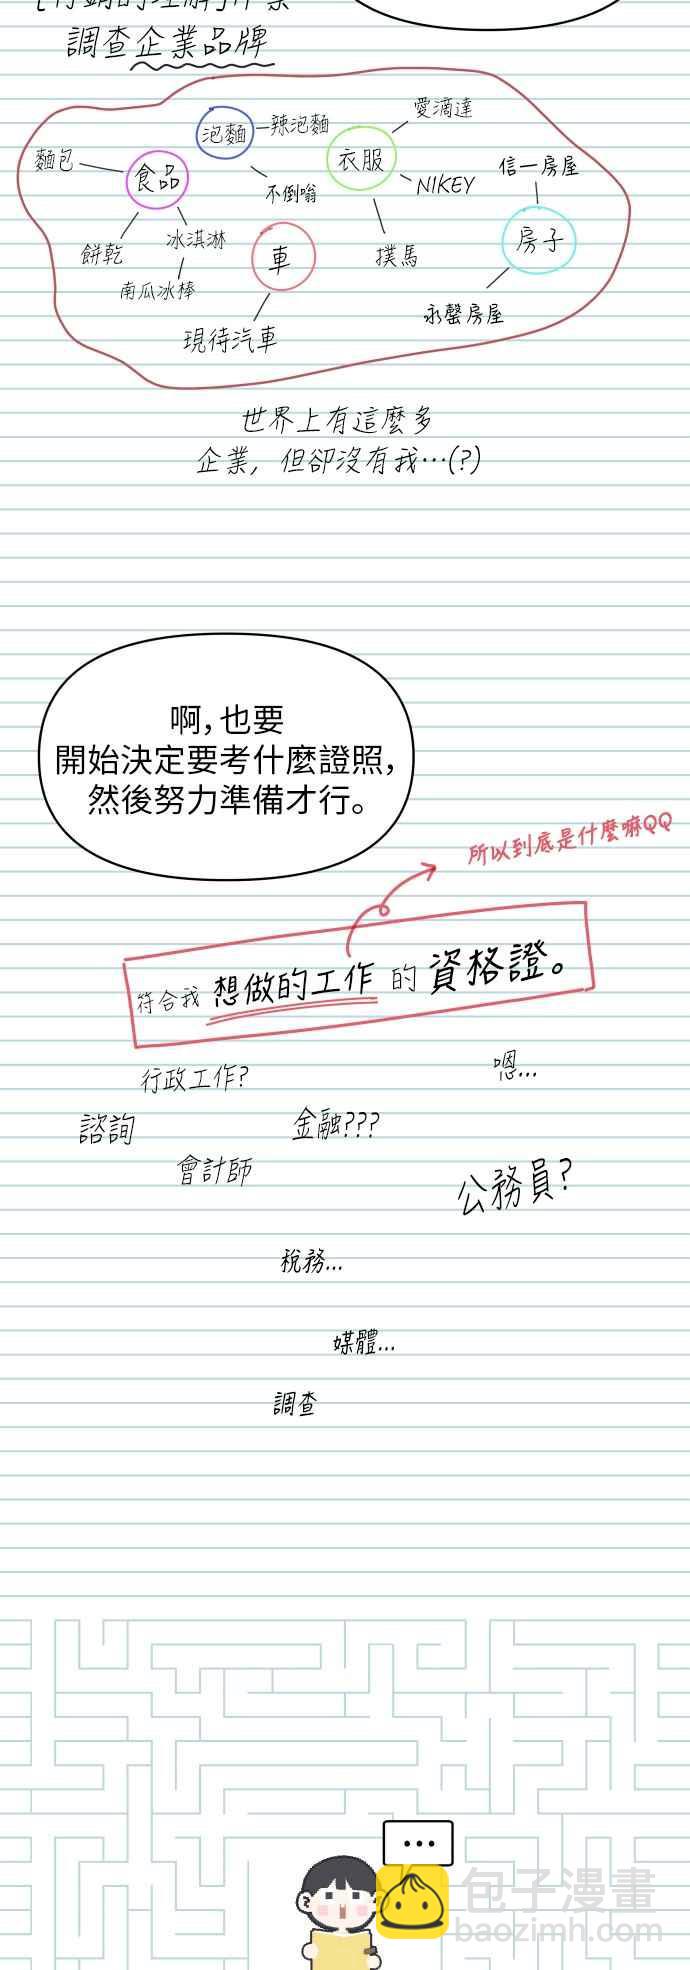 調查企業品牌
泡麵
辣泡麵
愛滴達
麵包
食品
衣服
信一房屋
不倒嗡
NIKEY
餅乾
冰淇淋
車
撲馬
房子
南瓜冰棒
現待汽車
永罄房屋
世界上有這麼多
企業, 但卻沒有我…(?)
啊, 也要
開始決定要考什麼證照,
然後努力準備才行。
所以到底是什麼嘛QQ
符合我 想做的工作 的 資格證。
行政工作?
嗯...
諮詢
金融???
會計師
公務員?
稅務...
媒體...
調查
...
包子漫畫
baozimh.com